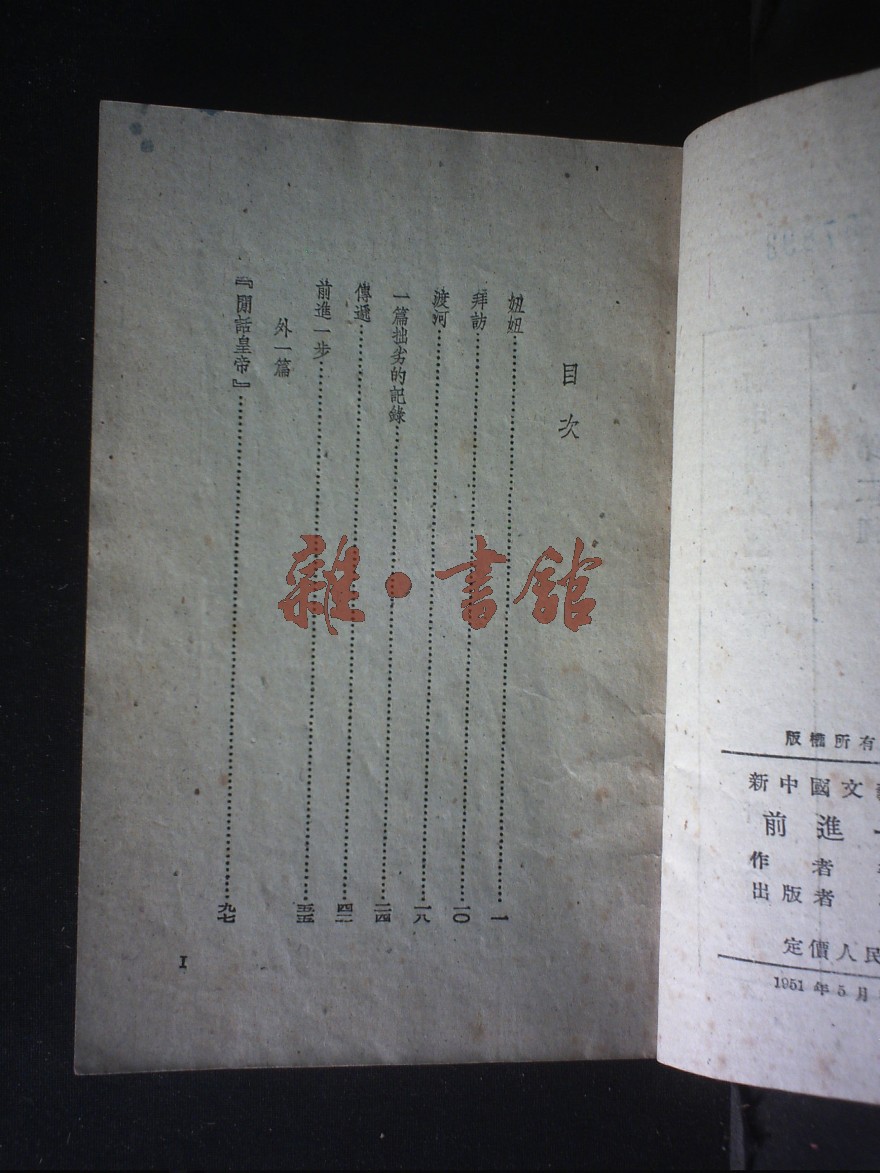 目次
妞妞……一
拜訪……一〇
渡河……一八
一篇拙劣的記錄……二四
傳遞……四二
前進一步……五五
外一篇
『閒話皇帝』……九七
I
雜·書館
版權所有
新中國文
前進
作者
出版者
定價人民
1951年5月